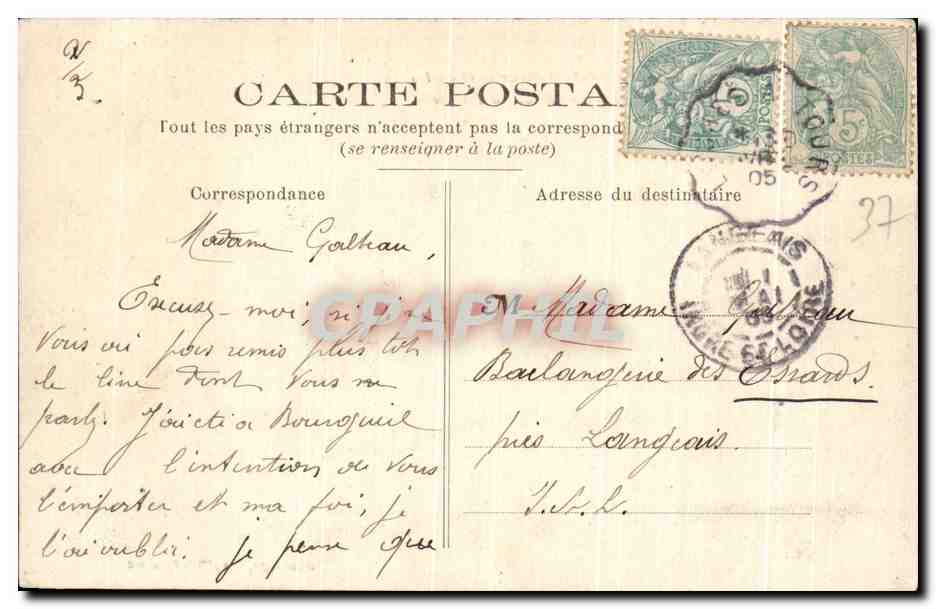 N/3.
CARTE POSTA
Tout les pays étrangers n'acceptent pas la correspond
(se renseigner à la poste)
Correspondance
Adresse du destinataire
TOURS
05
5c
POSTES
37
LANGEAIS
MAI
05
INDRE ET LOIRE
Madame Galteau,
Excusez-moi, si je ne
vous ai pas remis plus tôt
le livre dont vous me
parlez. J'ai été a Bourgueil
avec l'intention de vous
l'emporter et ma foi, je
l'ai oublié. je pense que
M Madame Galteau
Boulangerie des Essards.
près Langeais.
I. & L.
CPAPHIL